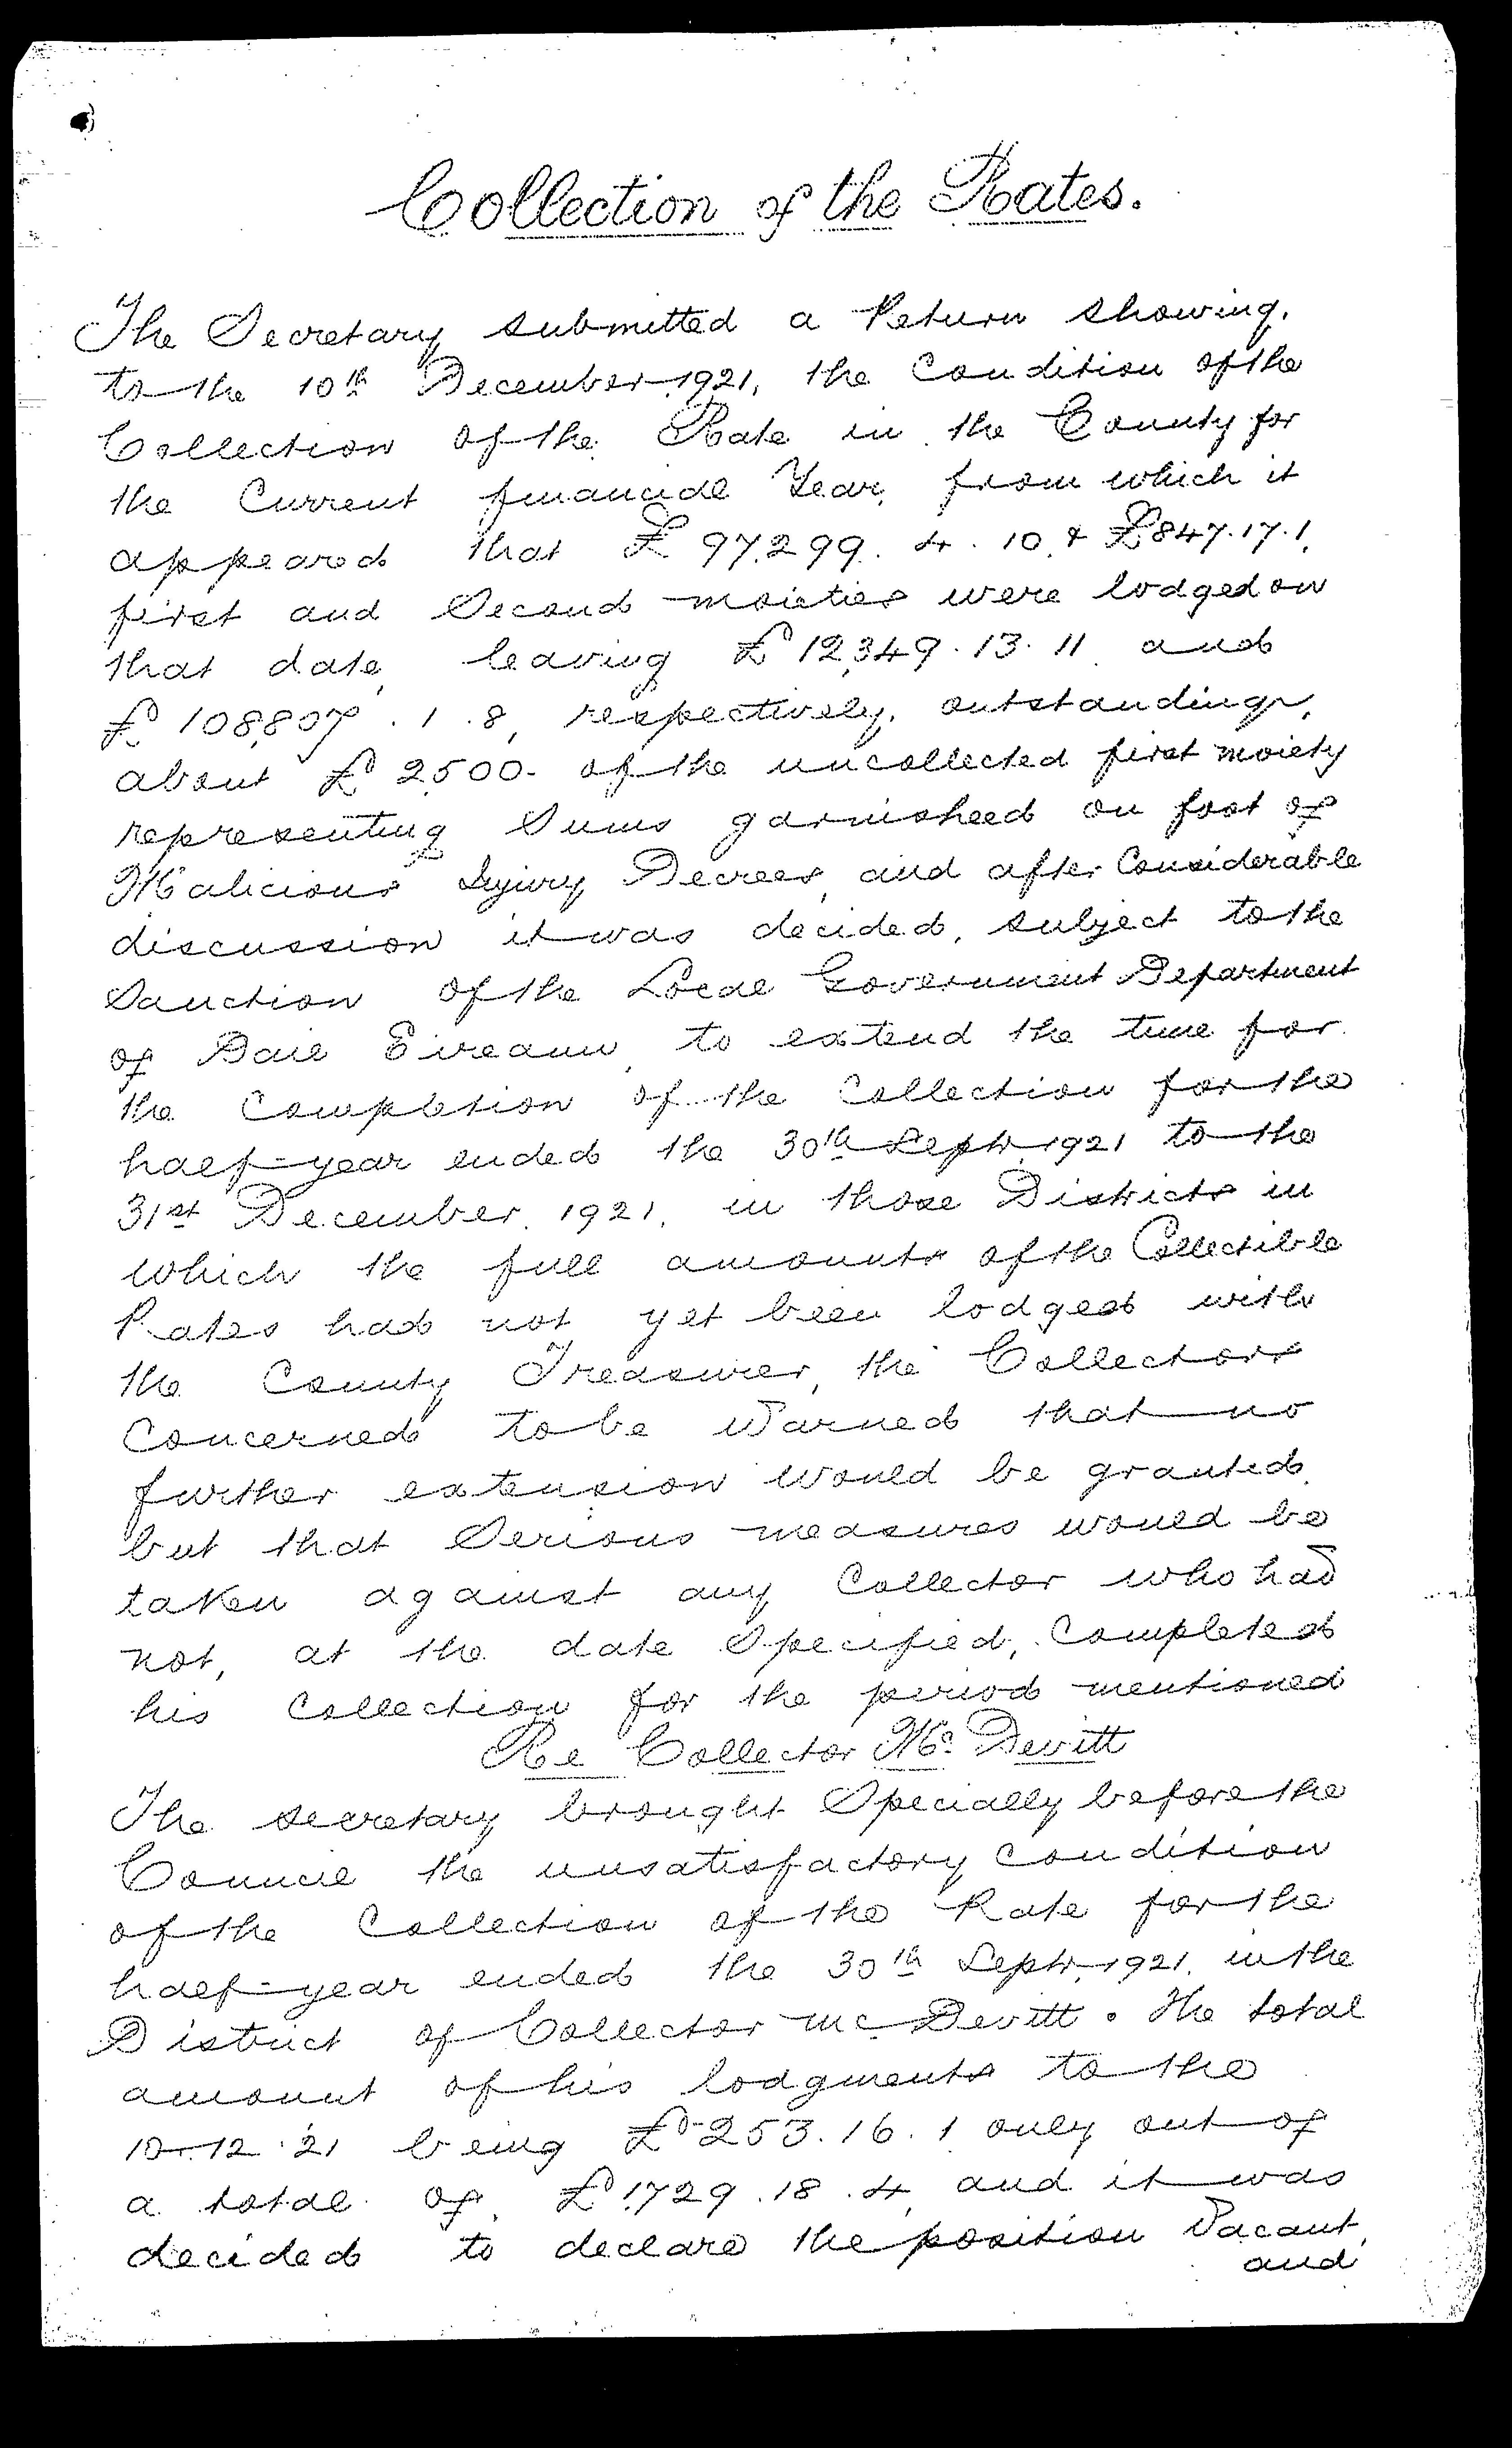 Collection of the Rates.
The Secretary submitted a Return showing,
to the 10th December 1921, the Condition of the
Collection of the Rate in the County for
the Current financial Year, from which it
appeared that £97,299. 4. 10. & £847.17.1,
first and Second moieties were lodged on
that date, leaving £12,349. 13. 11 and
£108,807. 1. 8, respectively, outstanding,
about £2500- of the uncollected first moiety
representing Sums garnisheed on foot of
Malicious Injury Decrees, and after Considerable
discussion it was decided, subject to the
Sanction of the Local Government Department
of Dail Eireann, to extend the time for
the Completion of the Collection for the
half-year ended the 30th Septr. 1921 to the
31st December, 1921, in those Districts in
which the full amounts of the Collectible
Rates had not yet been lodged with
the County Treasurer, the Collectors
Concerned to be Warned that no
further extension would be granted,
but that Serious measures would be
taken against any Collector who had
not, at the date Specified, Completed
his Collection for the period mentioned
Re Collector Mc. Devitt
The secretary brought Specially before the
Council the unsatisfactory Condition
of the Collection of the Rate for the
half-year ended the 30th Septr. 1921, in the
District of Collector Mc. Devitt. The total
amount of his lodgments to the
10.12.21 being £253. 16. 1 only out of
a total of £1729. 18. 4, and it was
decided to declare the position Vacant,
and